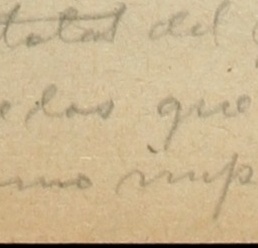 total del
e los que
mo imp